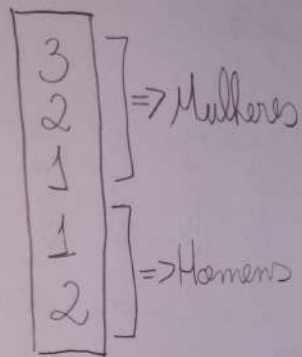 3
2 => Mulheres
1
1
2 => Homens